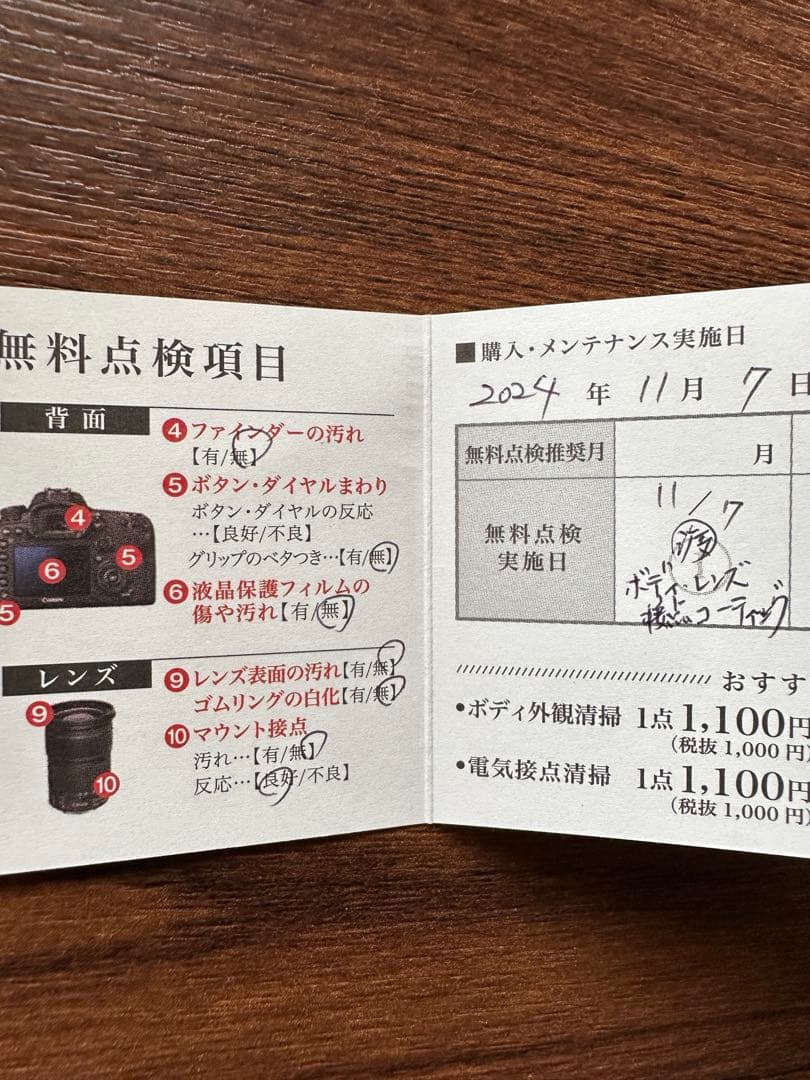 無料点検項目
背面
④ファインダーの汚れ
【有/無】
⑤ボタン・ダイヤルまわり
ボタン・ダイヤルの反応
…【良好/不良】
グリップのベタつき…【有/無】
⑥液晶保護フィルムの
傷や汚れ【有/無】
4
6
5
5
Canon
レンズ
⑨レンズ表面の汚れ【有/無】
ゴムリングの白化【有/無】
⑩マウント接点
汚れ…【有/無】
反応…【良好/不良】
9
10
■購入・メンテナンス実施日
2024年11月7日
無料点検推奨月
月
無料点検
実施日
11/7
ボディ・レンズ
接点コーティング
おすす
•ボディ外観清掃 1点1,100円
(税抜1,000円)
•電気接点清掃 1点1,100円
(税抜1,000円)